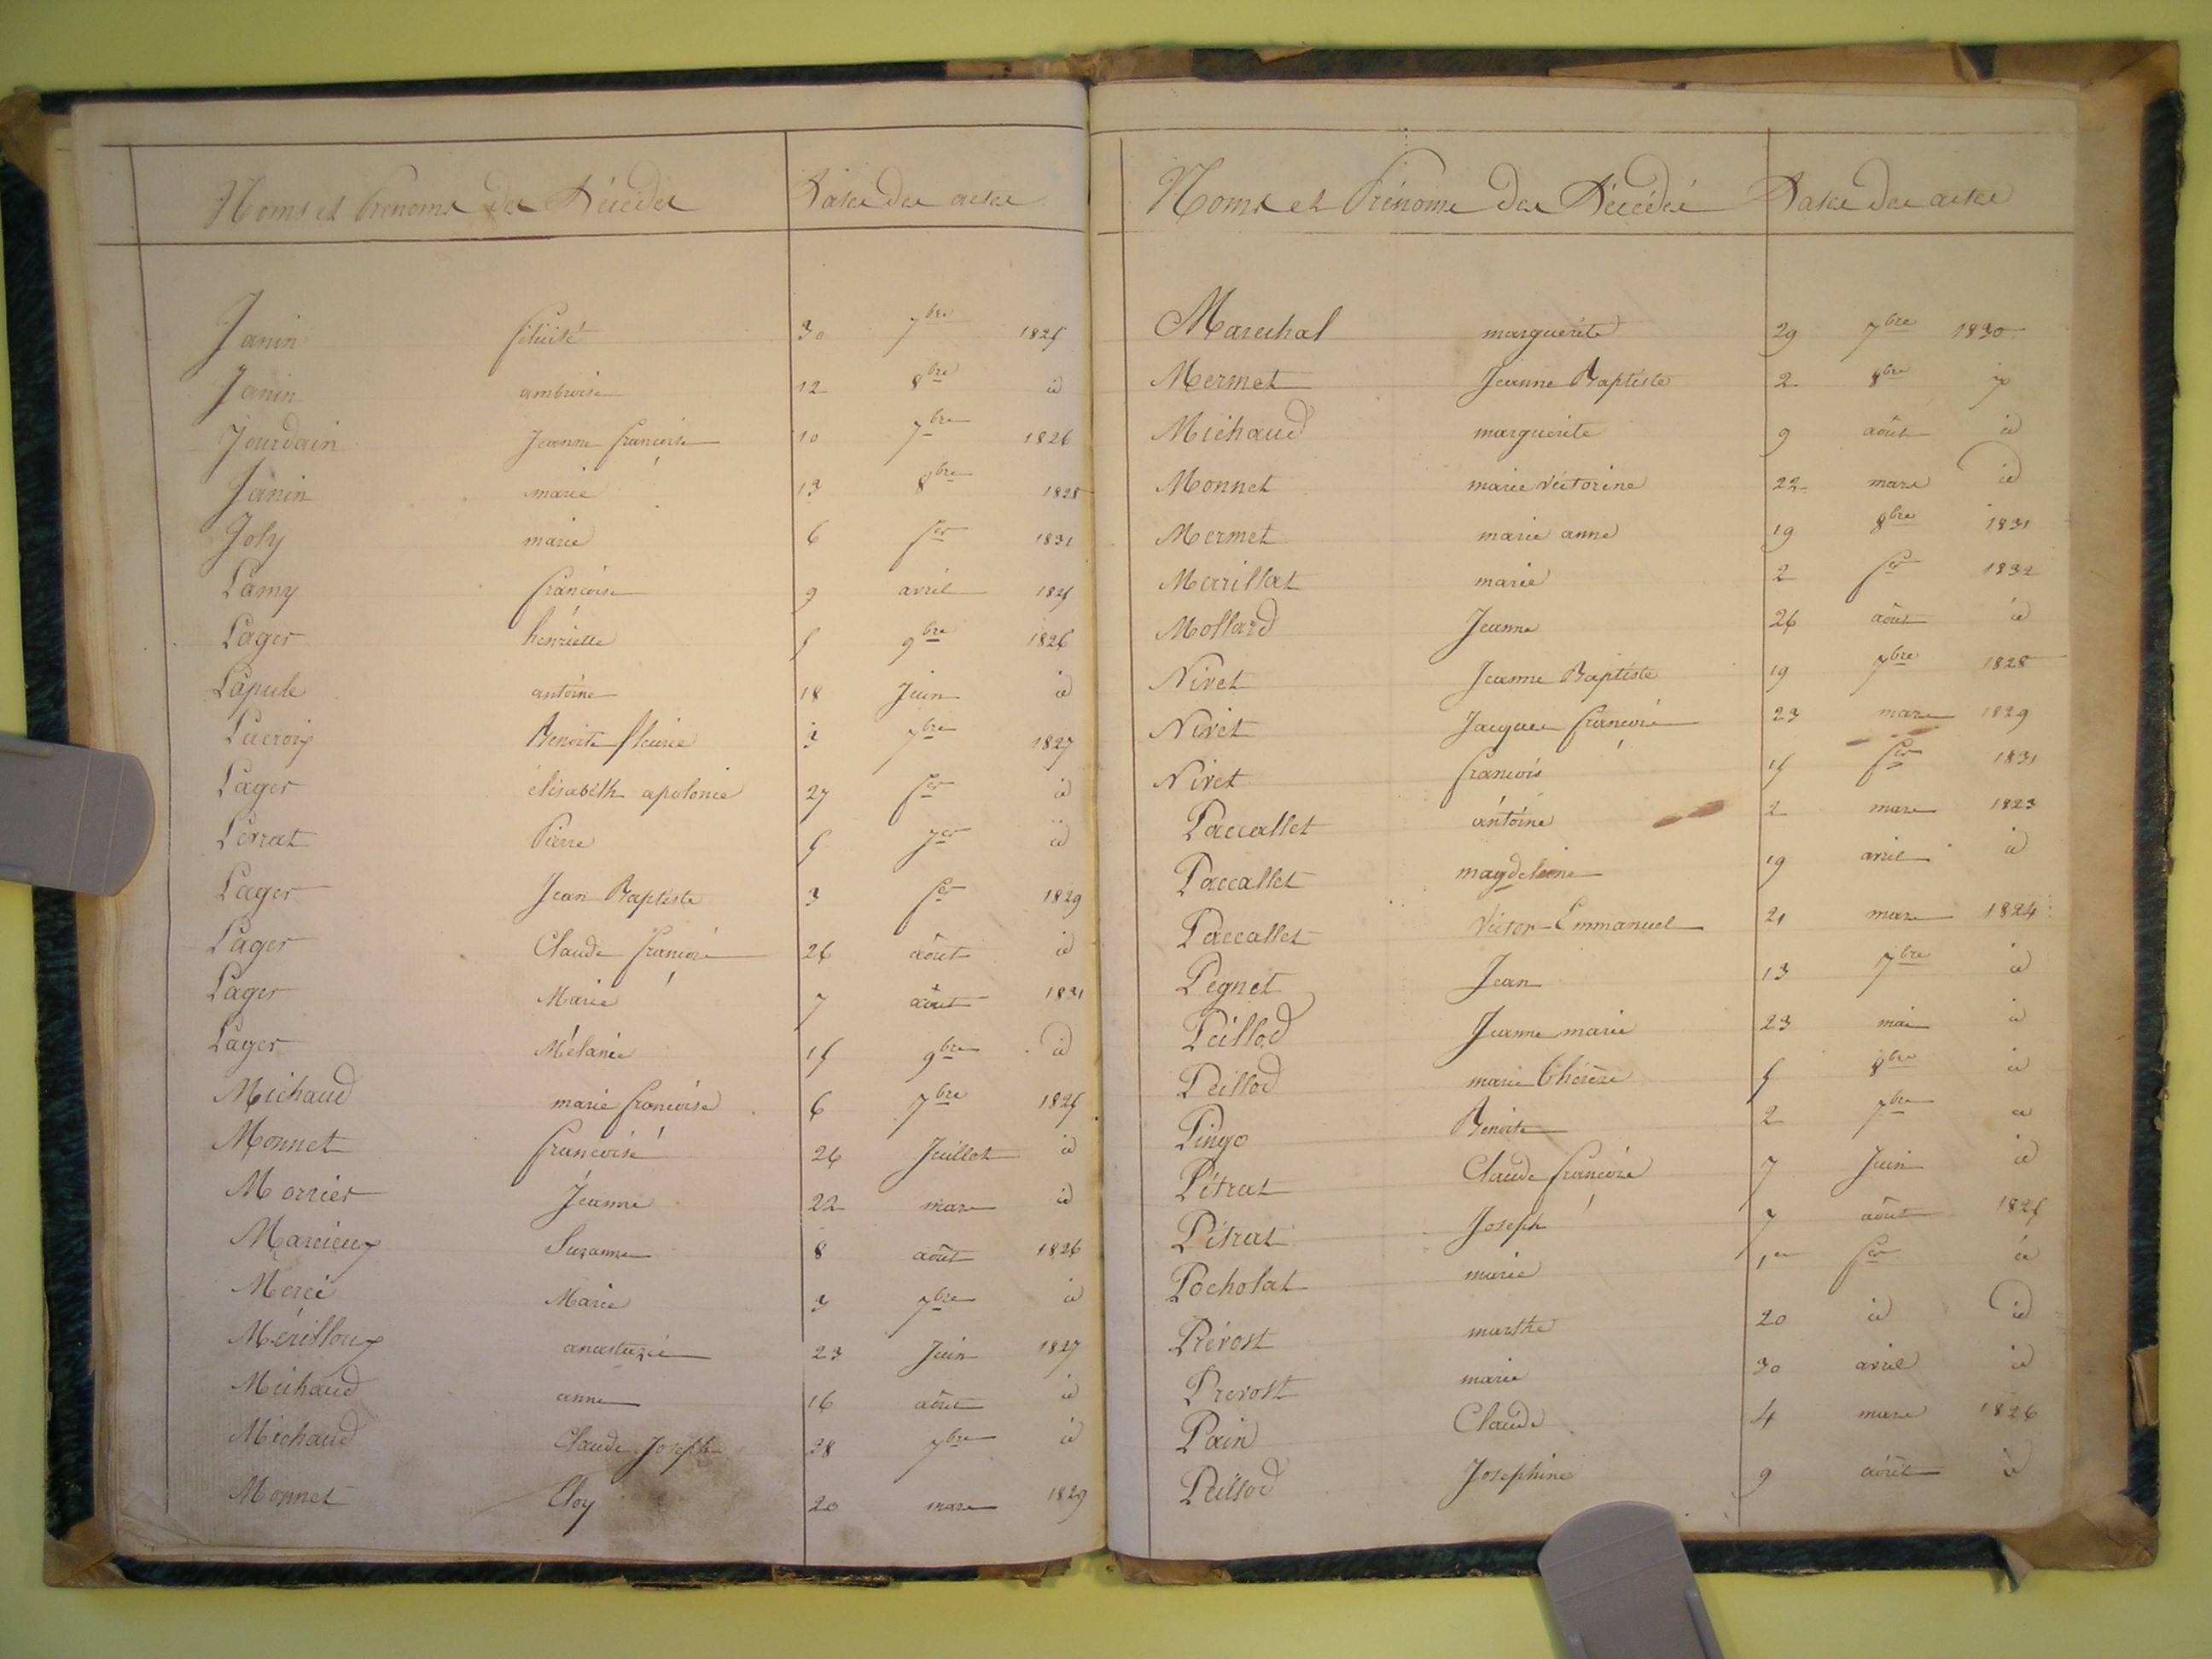 Noms et Prénoms des Décédés Date des actes
Janin félicité 30 7bre 1825
Janin ambroise 12 8bre id
Jourdain Jeanne françoise 10 7bre 1826
Janin marie 13 8bre 1828
Joly marie 6 fer 1831
Lamy françoise 9 avril 1825
Lager henriette 5 9bre 1826
Lapule antoine 18 Juin id
Lacroix Benoite fleurie 3 7bre 1827
Lager élisabeth apolonie 27 fer id
Lerrat Pierre 5 Jer id
Lager Jean Baptiste 3 fer 1829
Lager Claude François 26 août id
Lager Marie 7 août 1831
Lager Mélanie 15 9bre id
Michaud marie françoise 6 7bre 1825
Monnet françoise 26 Juillet id
Morrier Jeanne 22 mars id
Marcieux Suzanne 8 août 1826
Merce Marie 3 7bre id
Mérilloux anastazie 23 Juin 1827
Michaud anne 16 août id
Michaud Claude Joseph 28 7bre id
Monnet Eloy 20 mars 1829
Noms et Prénoms des Décédés Dates des actes
Marechal marguerite 29 7bre 1830
Mermet Jeanne Baptiste 2 8bre
Michaud marguerite 9 août id
Monnet marie victorine 22 mars id
Mermet marie anne 19 8bre 1831
Marillat marie 2 fer 1832
Mollard Jeanne 26 août id
Nivet Jeanne Baptiste 19 7bre 1828
Nivet Jacques françois 23 mars 1829
Nivet françois 15 fer 1831
Paccallet antoine 2 mars 1823
Paccallet magdeleine 19 avril id
Paccallet Victor-Emmanuel 21 mars 1824
Pegnet Jean 13 7bre id
Peillod Jeanne marie 23 mai id
Peillod marie Thérèse 5 8bre id
Pingo Benoite 2 7bre id
Pétrat Claude françoise 7 Juin id
Pétrat Joseph 7 août 1825
Pocholat marie 1er fer id
Prévost marthe 20 id id
Prevost marie 30 avril id
Pain Claude 4 mars 1826
Peillod Josephine 9 août id